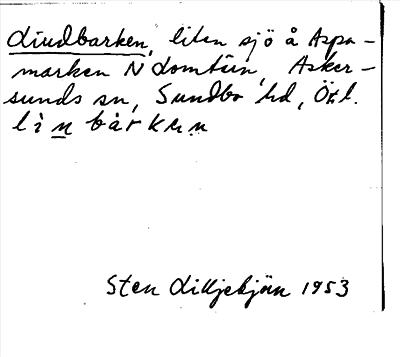 Lindbarken, liten sjö å Aspa-
marken N Domtin, Asker-
sunds sn, Sundbo hd, Ötl.
lìn bàrken
Sten Lilljebjän 1953